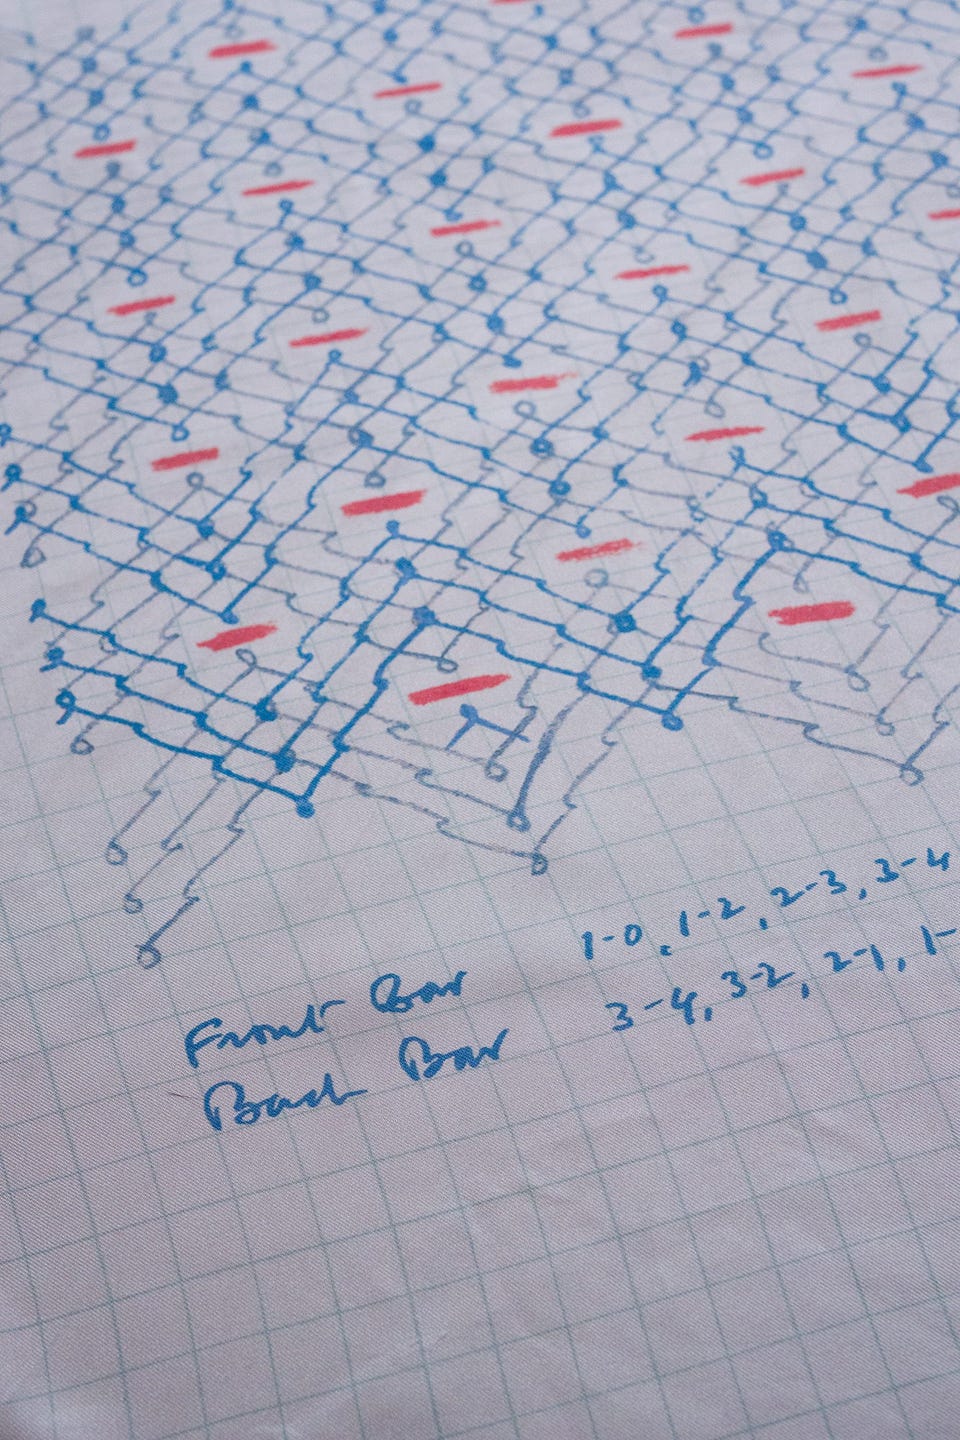 Front Bar 1-0, 1-2, 2-3, 3-4
Back Bar 3-4, 3-2, 2-1, 1-